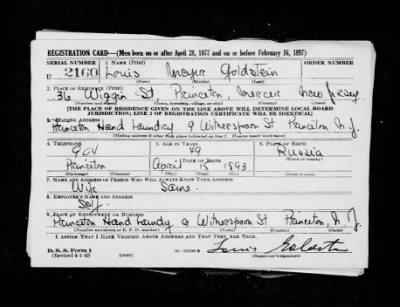 REGISTRATION CARD—(Men born on or after April 28, 1877 and on or before February 16, 1897)
SERIAL NUMBER 1. NAME (Print) ORDER NUMBER
U 2160 Louis Meyer Goldstein
(First) (Middle) (Last)
2. PLACE OF RESIDENCE (Print)
36 Wiggin St Princeton Mercer New Jersey
(Number and street) (Town, township, village, or city) (County) (State)
[THE PLACE OF RESIDENCE GIVEN ON THE LINE ABOVE WILL DETERMINE LOCAL BOARD
JURISDICTION; LINE 2 OF REGISTRATION CERTIFICATE WILL BE IDENTICAL]
3. MAILING ADDRESS
Princeton Hand Laundry 9 Witherspoon St Princeton N.J.
[Mailing address if other than place indicated on line 2. If same insert word same]
4. TELEPHONE 5. AGE IN YEARS 6. PLACE OF BIRTH
49
Princeton DATE OF BIRTH Russia
April 15 1893
7. NAME AND ADDRESS OF PERSON WHO WILL ALWAYS KNOW YOUR ADDRESS
Wife Same
8. EMPLOYER'S NAME AND ADDRESS
Self
9. PLACE OF EMPLOYMENT OR BUSINESS
Princeton Hand Laundry 9 Witherspoon St Princeton, N. J.
(Number and street or R. F. D. number) (Town) (County) (State)
I AFFIRM THAT I HAVE VERIFIED ABOVE ANSWERS AND THAT THEY ARE TRUE.
D. S. S. Form 1 Louis Goldstein
(Revised 4-1-42) (over) (Registrant's signature)